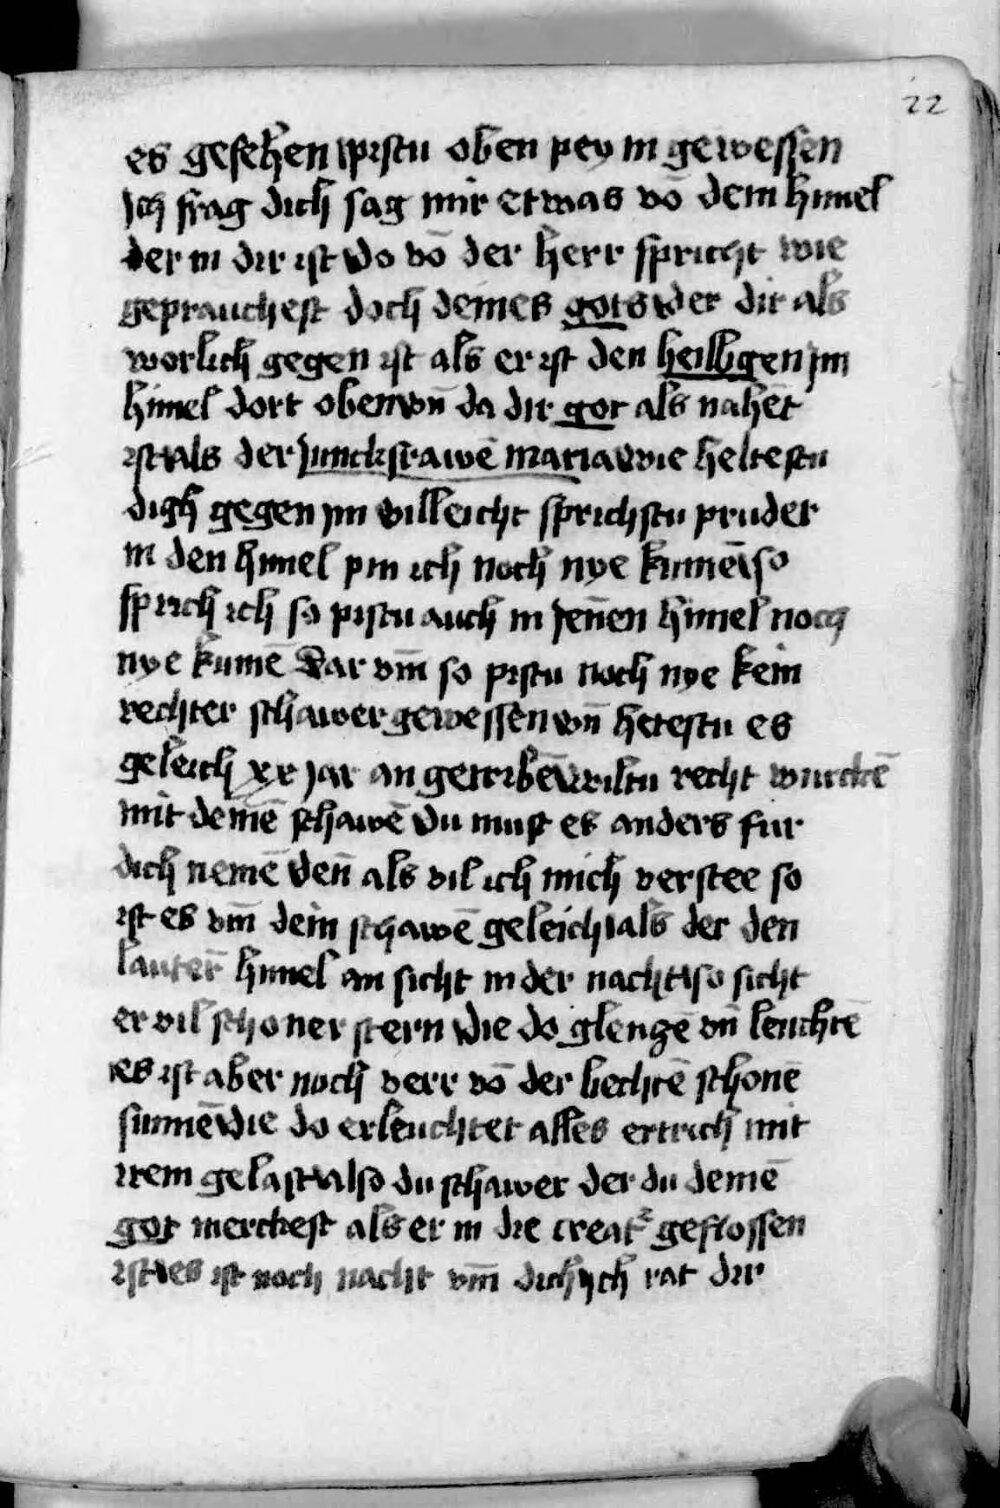 22
es gesehen pistu oben pey in gewessen
Ich frag dich sag mir etwas vō dem himel
der in dir ist do vō der herr spricht wie
geprauchest doch deines gots der dir als
worlich gegen ist als er ist den heilligen jm
himel dort oben vn̄ da dir got als nahēt
ist als der junckfrawē maria wie heltestu
dich gegen jm villeicht sprichstu pruder
in den himel pin ich noch nye kumē so
sprich ich so pistu auch in jenen himel noch
nye kumē Dar vm̄ so pistu noch nye kein
rechter schawer gewessen vn̄ hetestu es
geleich xx jar an getribē wiltu recht wurckē
mit deinē schawē du must es anders fur
dich nemē den̄ als vil ich mich verstee so
ist es vm̄ dein schawē geleich als der den
lauterē himel an sicht in der nacht so sicht
er vil schoner stern die do glenzē vn̄ leuchtē
es ist aber noch verr vō der liechtē schonē
sunnē die do erleuchtet alles ertrich mit
irem gelast also du schawer der du deinē
got merckest als er in die creat᷑ geflossen
ist es ist noch nacht vm̄ dich ich rat dir